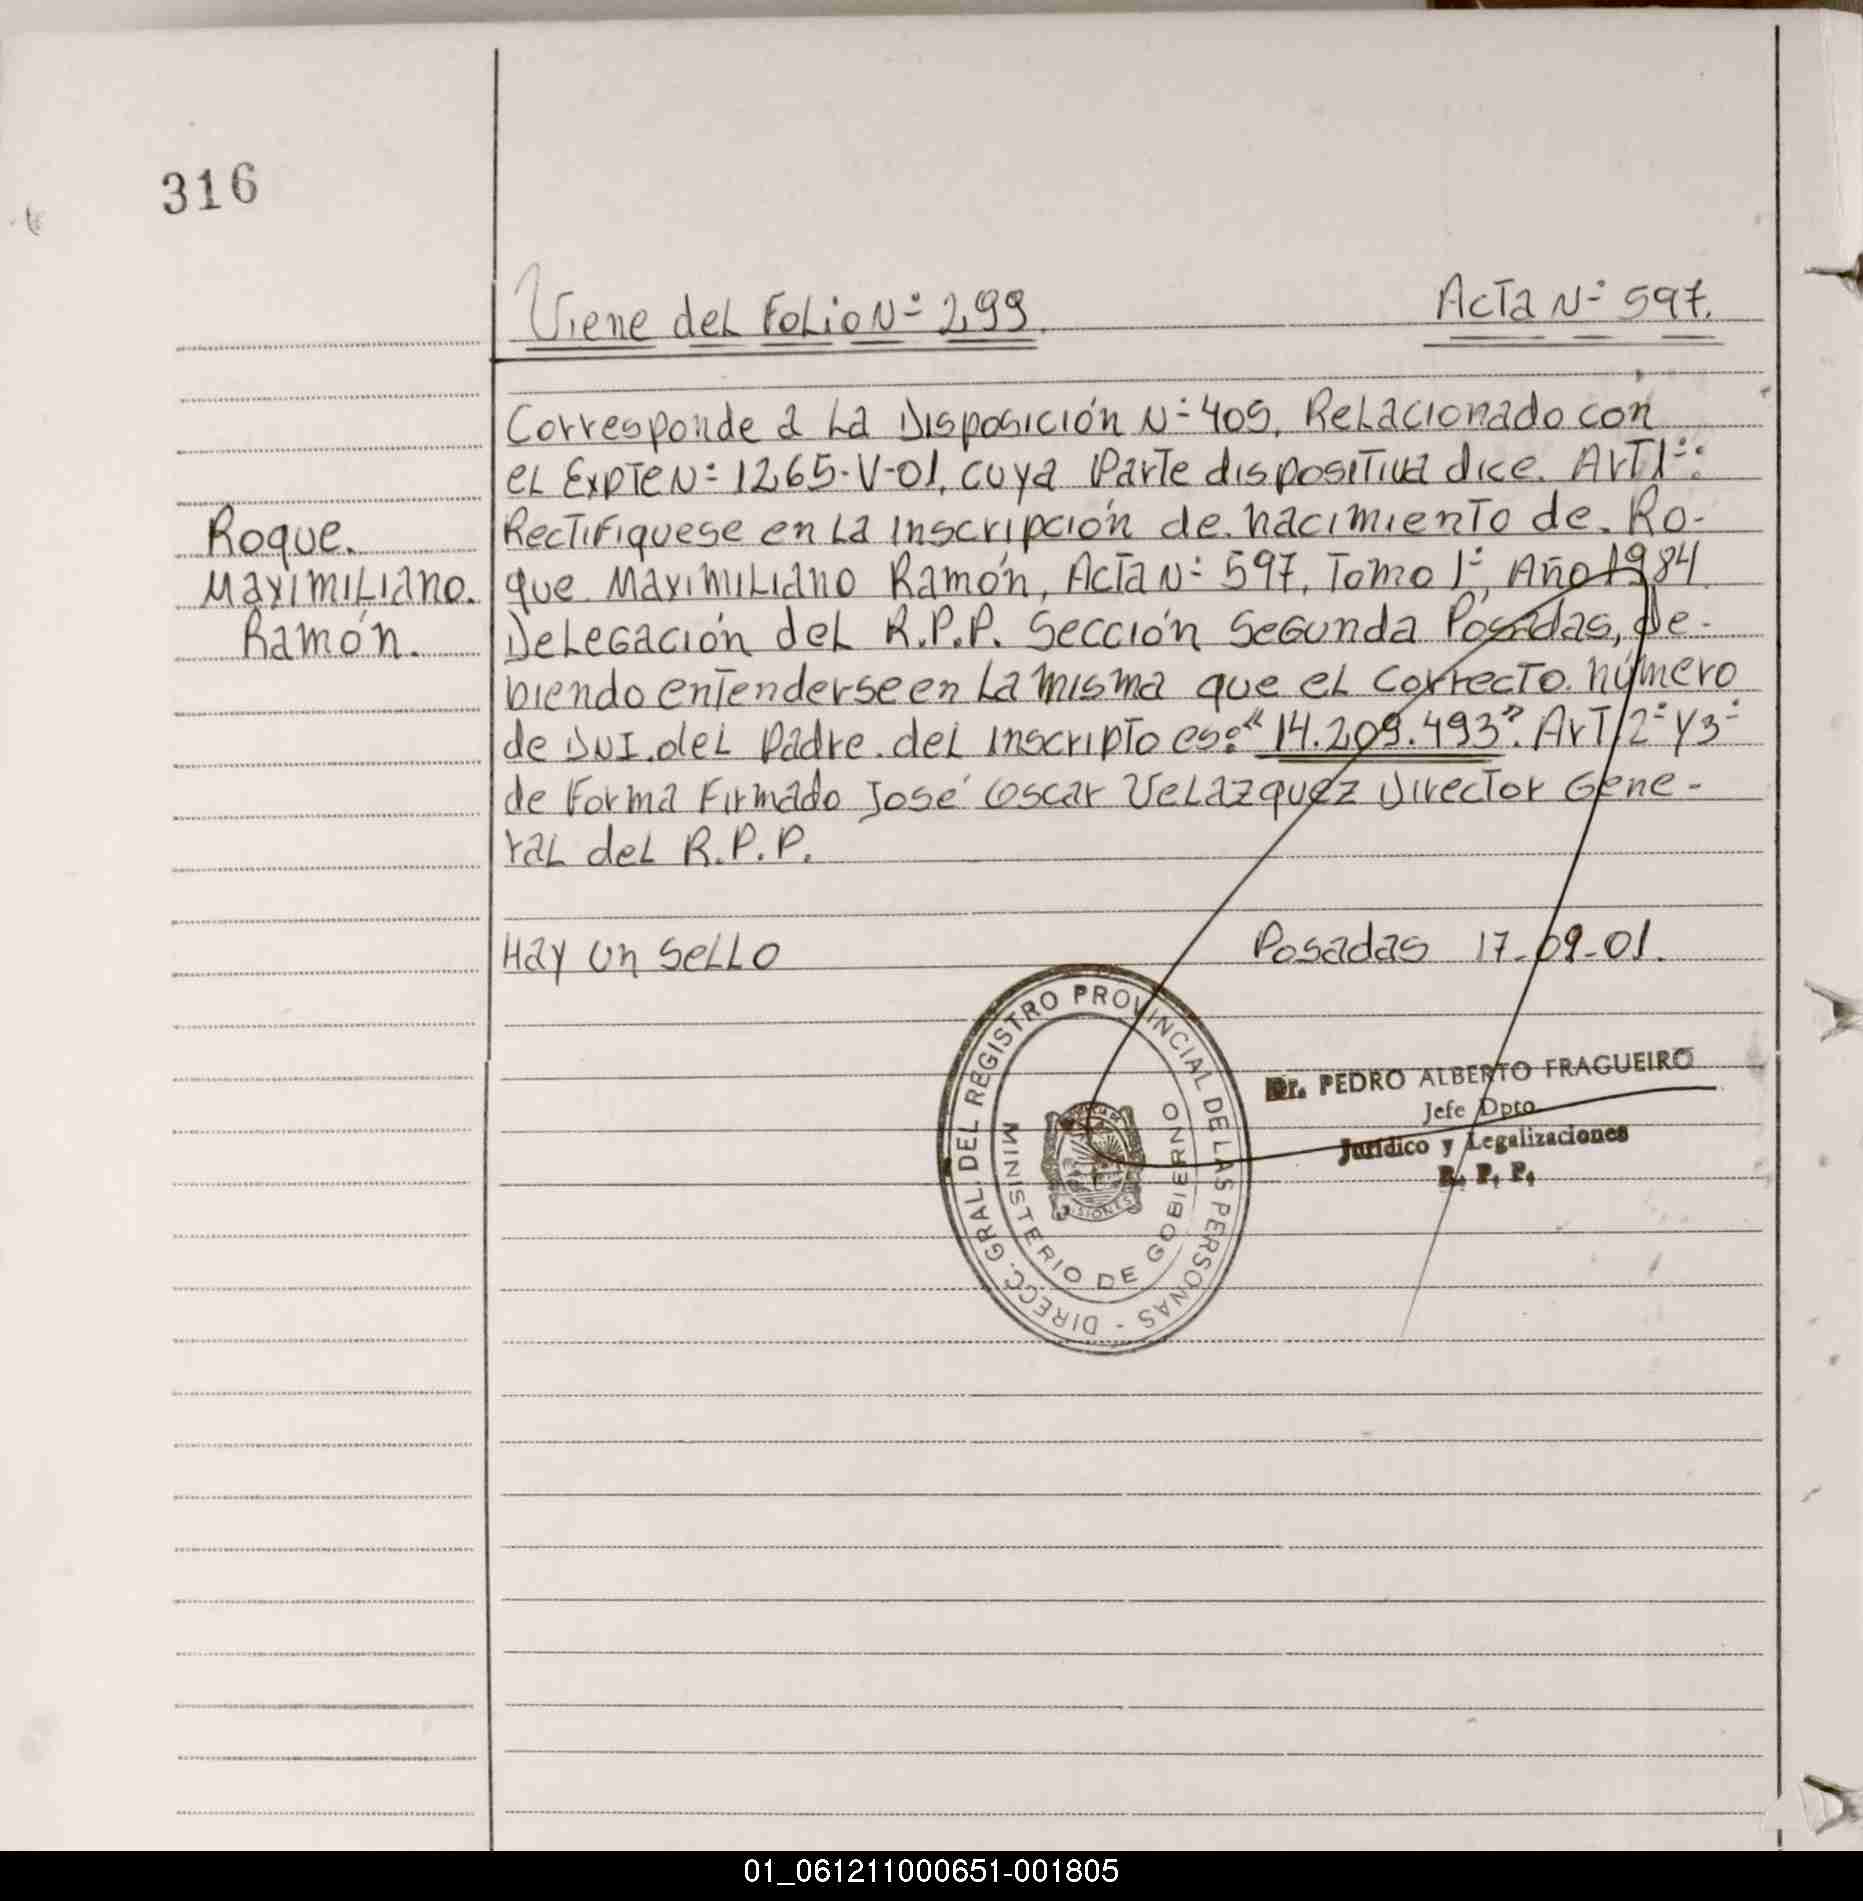 316
Viene del Folio N° 299. Acta N° 597.
Corresponde a La Disposición N° 409, Relacionado con
el Expte N° 1265-V-01, cuya Parte dispositiva dice. Art 1°:
Rectifíquese en La Inscripción de nacimiento de. Ro-
que Maximiliano Ramón, Acta N° 597, Tomo 1°, Año 1984
Delegación del R.P.P. Sección Segunda Posadas, de-
biendo entenderse en La misma que el correcto número
de DNI. del padre. del inscripto es: "14.209.493". Art 2° y 3°
de Forma Firmado José Oscar Velazquez Director Gene-
ral del R.P.P.
Roque.
Maximiliano.
Ramón.
Hay un sello Posadas 17-09-01.
DIRECC. GRAL. DEL REGISTRO PROVINCIAL DE LAS PERSONAS -
MINISTERIO DE GOBIERNO
MISIONES
Dr. PEDRO ALBERTO FRAGUEIRO
Jefe Dpto.
Jurídico y Legalizaciones
R. P. P.
01_061211000651-001805